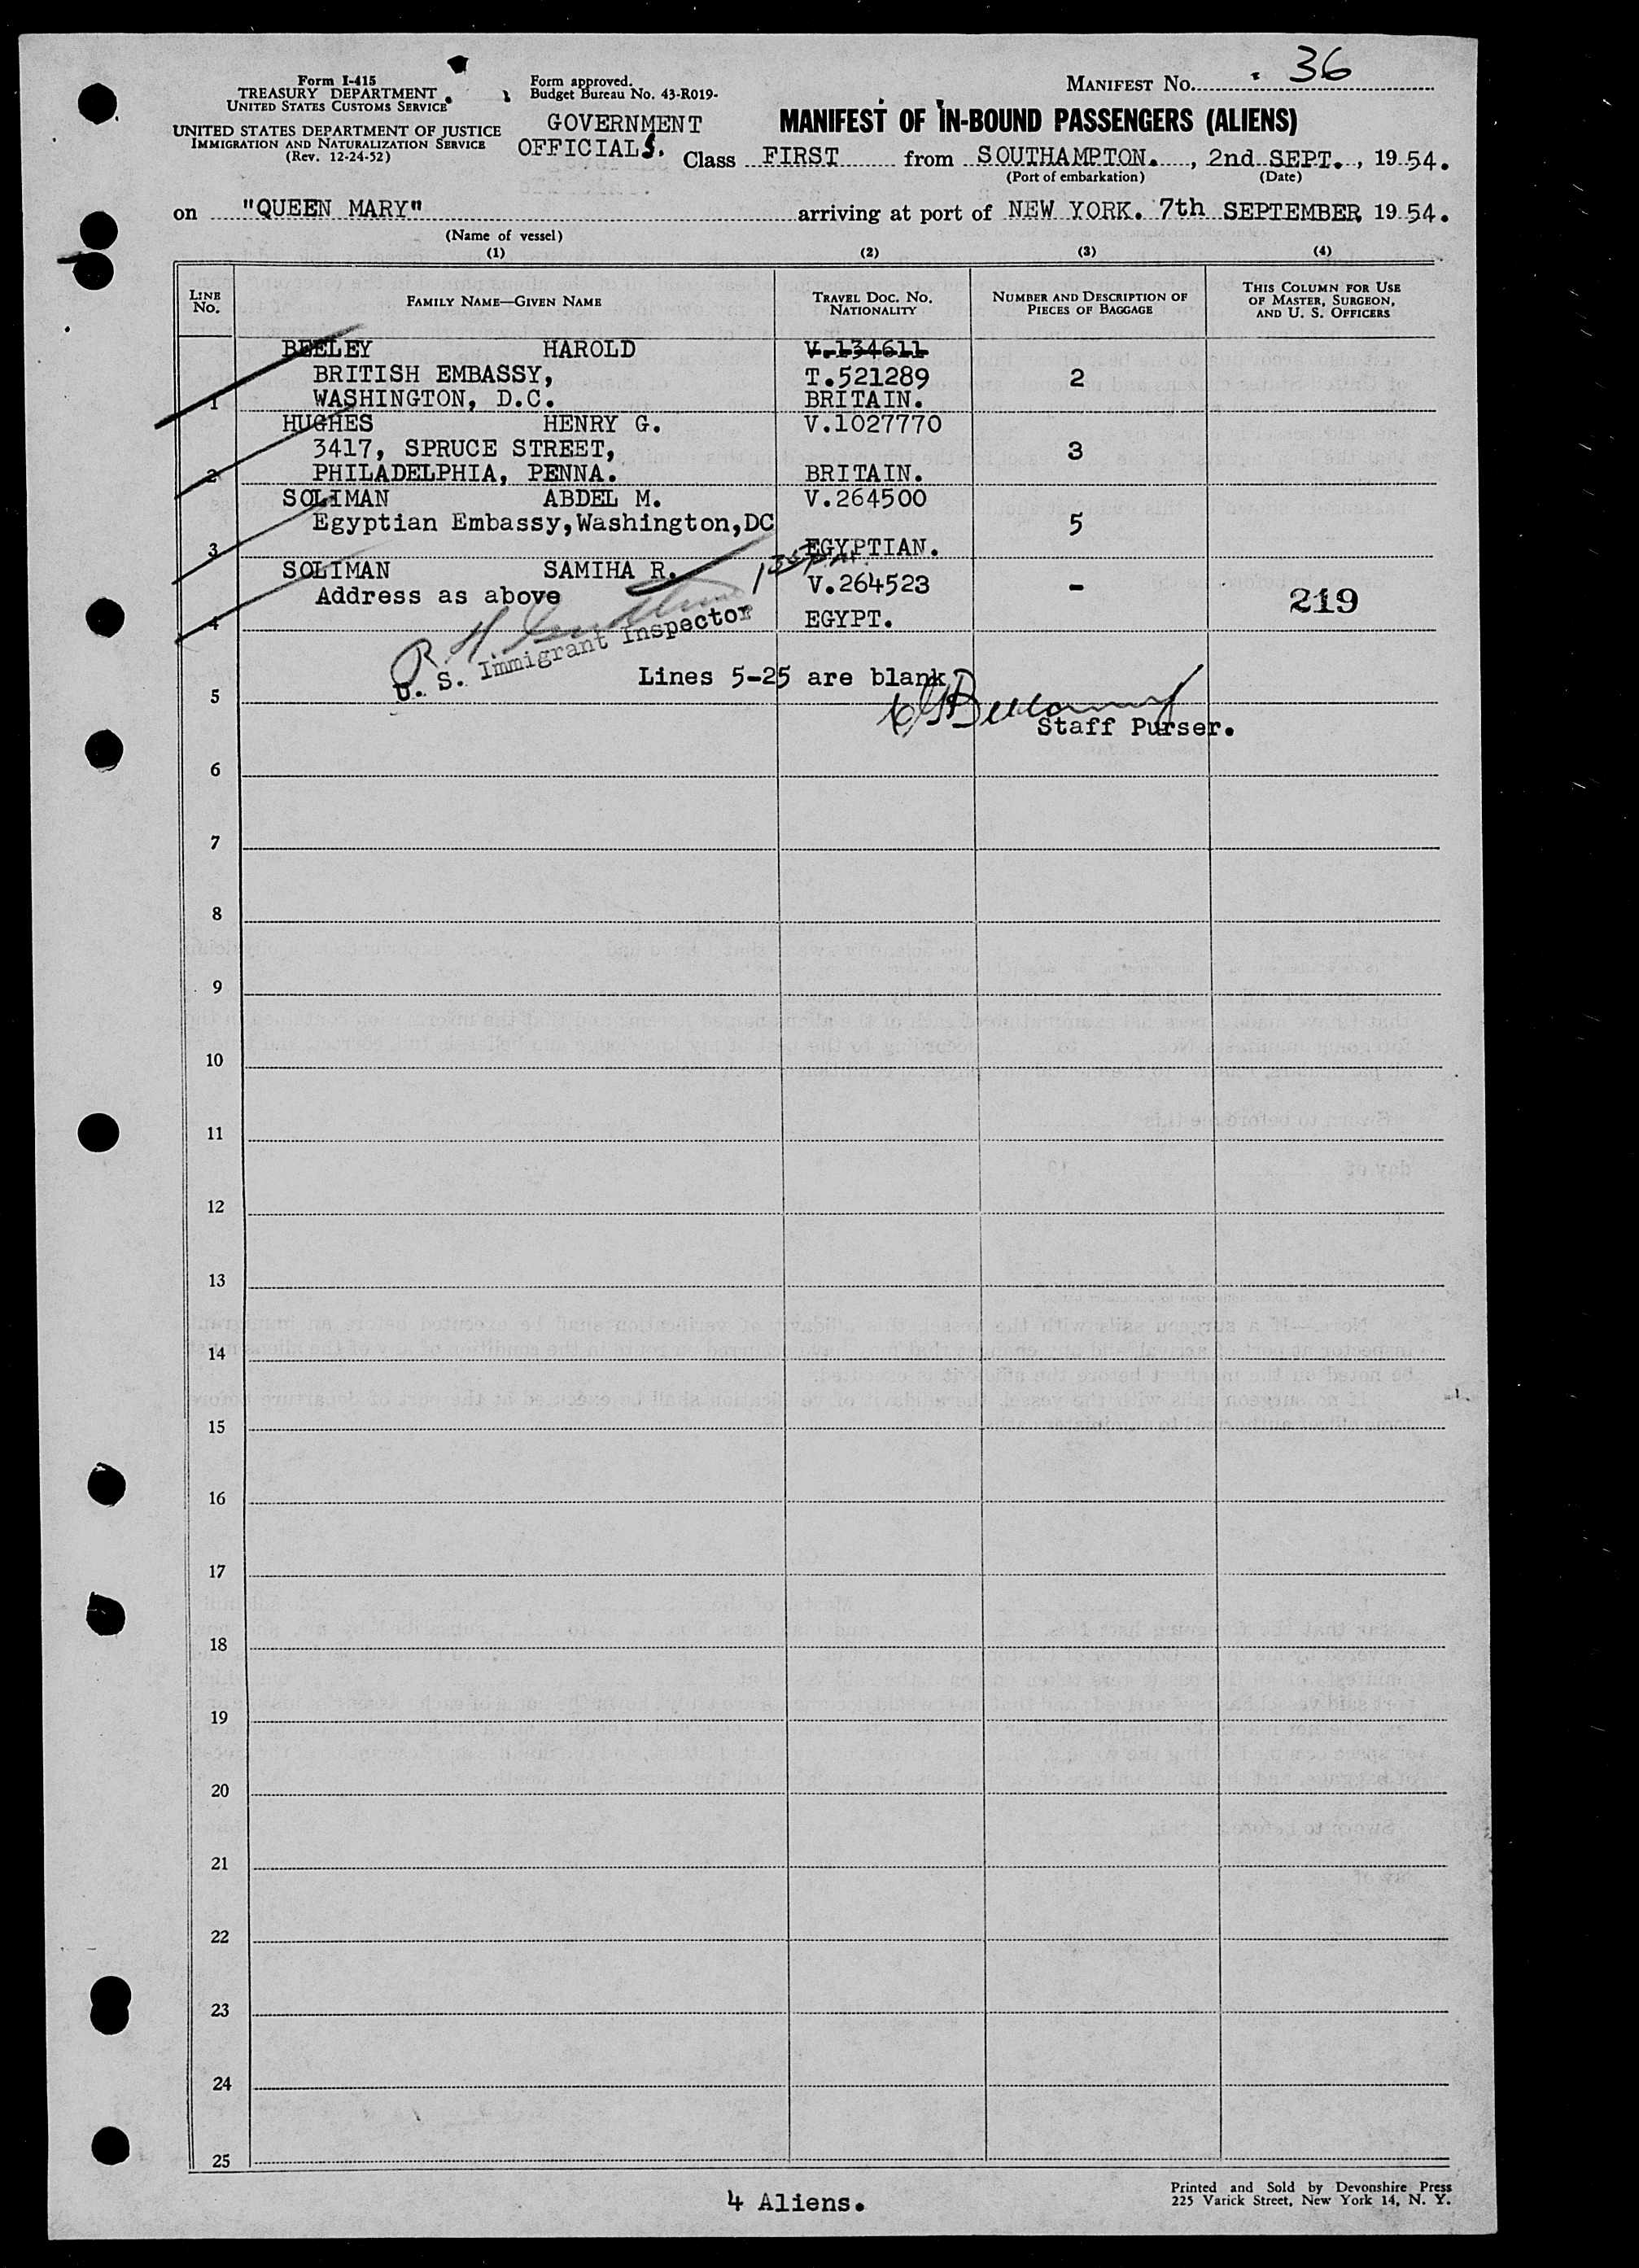 36
Form I-415
TREASURY DEPARTMENT
UNITED STATES CUSTOMS SERVICE
UNITED STATES DEPARTMENT OF JUSTICE
IMMIGRATION AND NATURALIZATION SERVICE
(Rev. 12-24-52)
Form approved.
Budget Bureau No. 43-R019-
GOVERNMENT
OFFICIALS.
MANIFEST NO.
MANIFEST OF IN-BOUND PASSENGERS (ALIENS)
Class FIRST from SOUTHAMPTON., 2nd SEPT., 1954.
(Port of embarkation) (Date)
on "QUEEN MARY" arriving at port of NEW YORK. 7th SEPTEMBER 1954.
(Name of vessel)
(1) (2) (3) (4)
LINE NO. FAMILY NAME—GIVEN NAME TRAVEL DOC. NO. NATIONALITY NUMBER AND DESCRIPTION OF PIECES OF BAGGAGE THIS COLUMN FOR USE OF MASTER, SURGEON, AND U. S. OFFICERS
BEELEY HAROLD V.134611
BRITISH EMBASSY, T.521289 2
1 WASHINGTON, D.C. BRITAIN.
HUGHES HENRY G. V.1027770
3417, SPRUCE STREET, 3
2 PHILADELPHIA, PENNA. BRITAIN.
SOLIMAN ABDEL M. V.264500
Egyptian Embassy, Washington, DC 5
3 EGYPTIAN.
SOLIMAN SAMIHA R. V.264523 -
Address as above 219
4 EGYPT.
U. S. Immigrant Inspector
Lines 5-25 are blank
5
Staff Purser.
6
7
8
9
10
11
12
13
14
15
16
17
18
19
20
21
22
23
24
25
4 Aliens.
Printed and Sold by Devonshire Press
225 Varick Street, New York 14, N. Y.